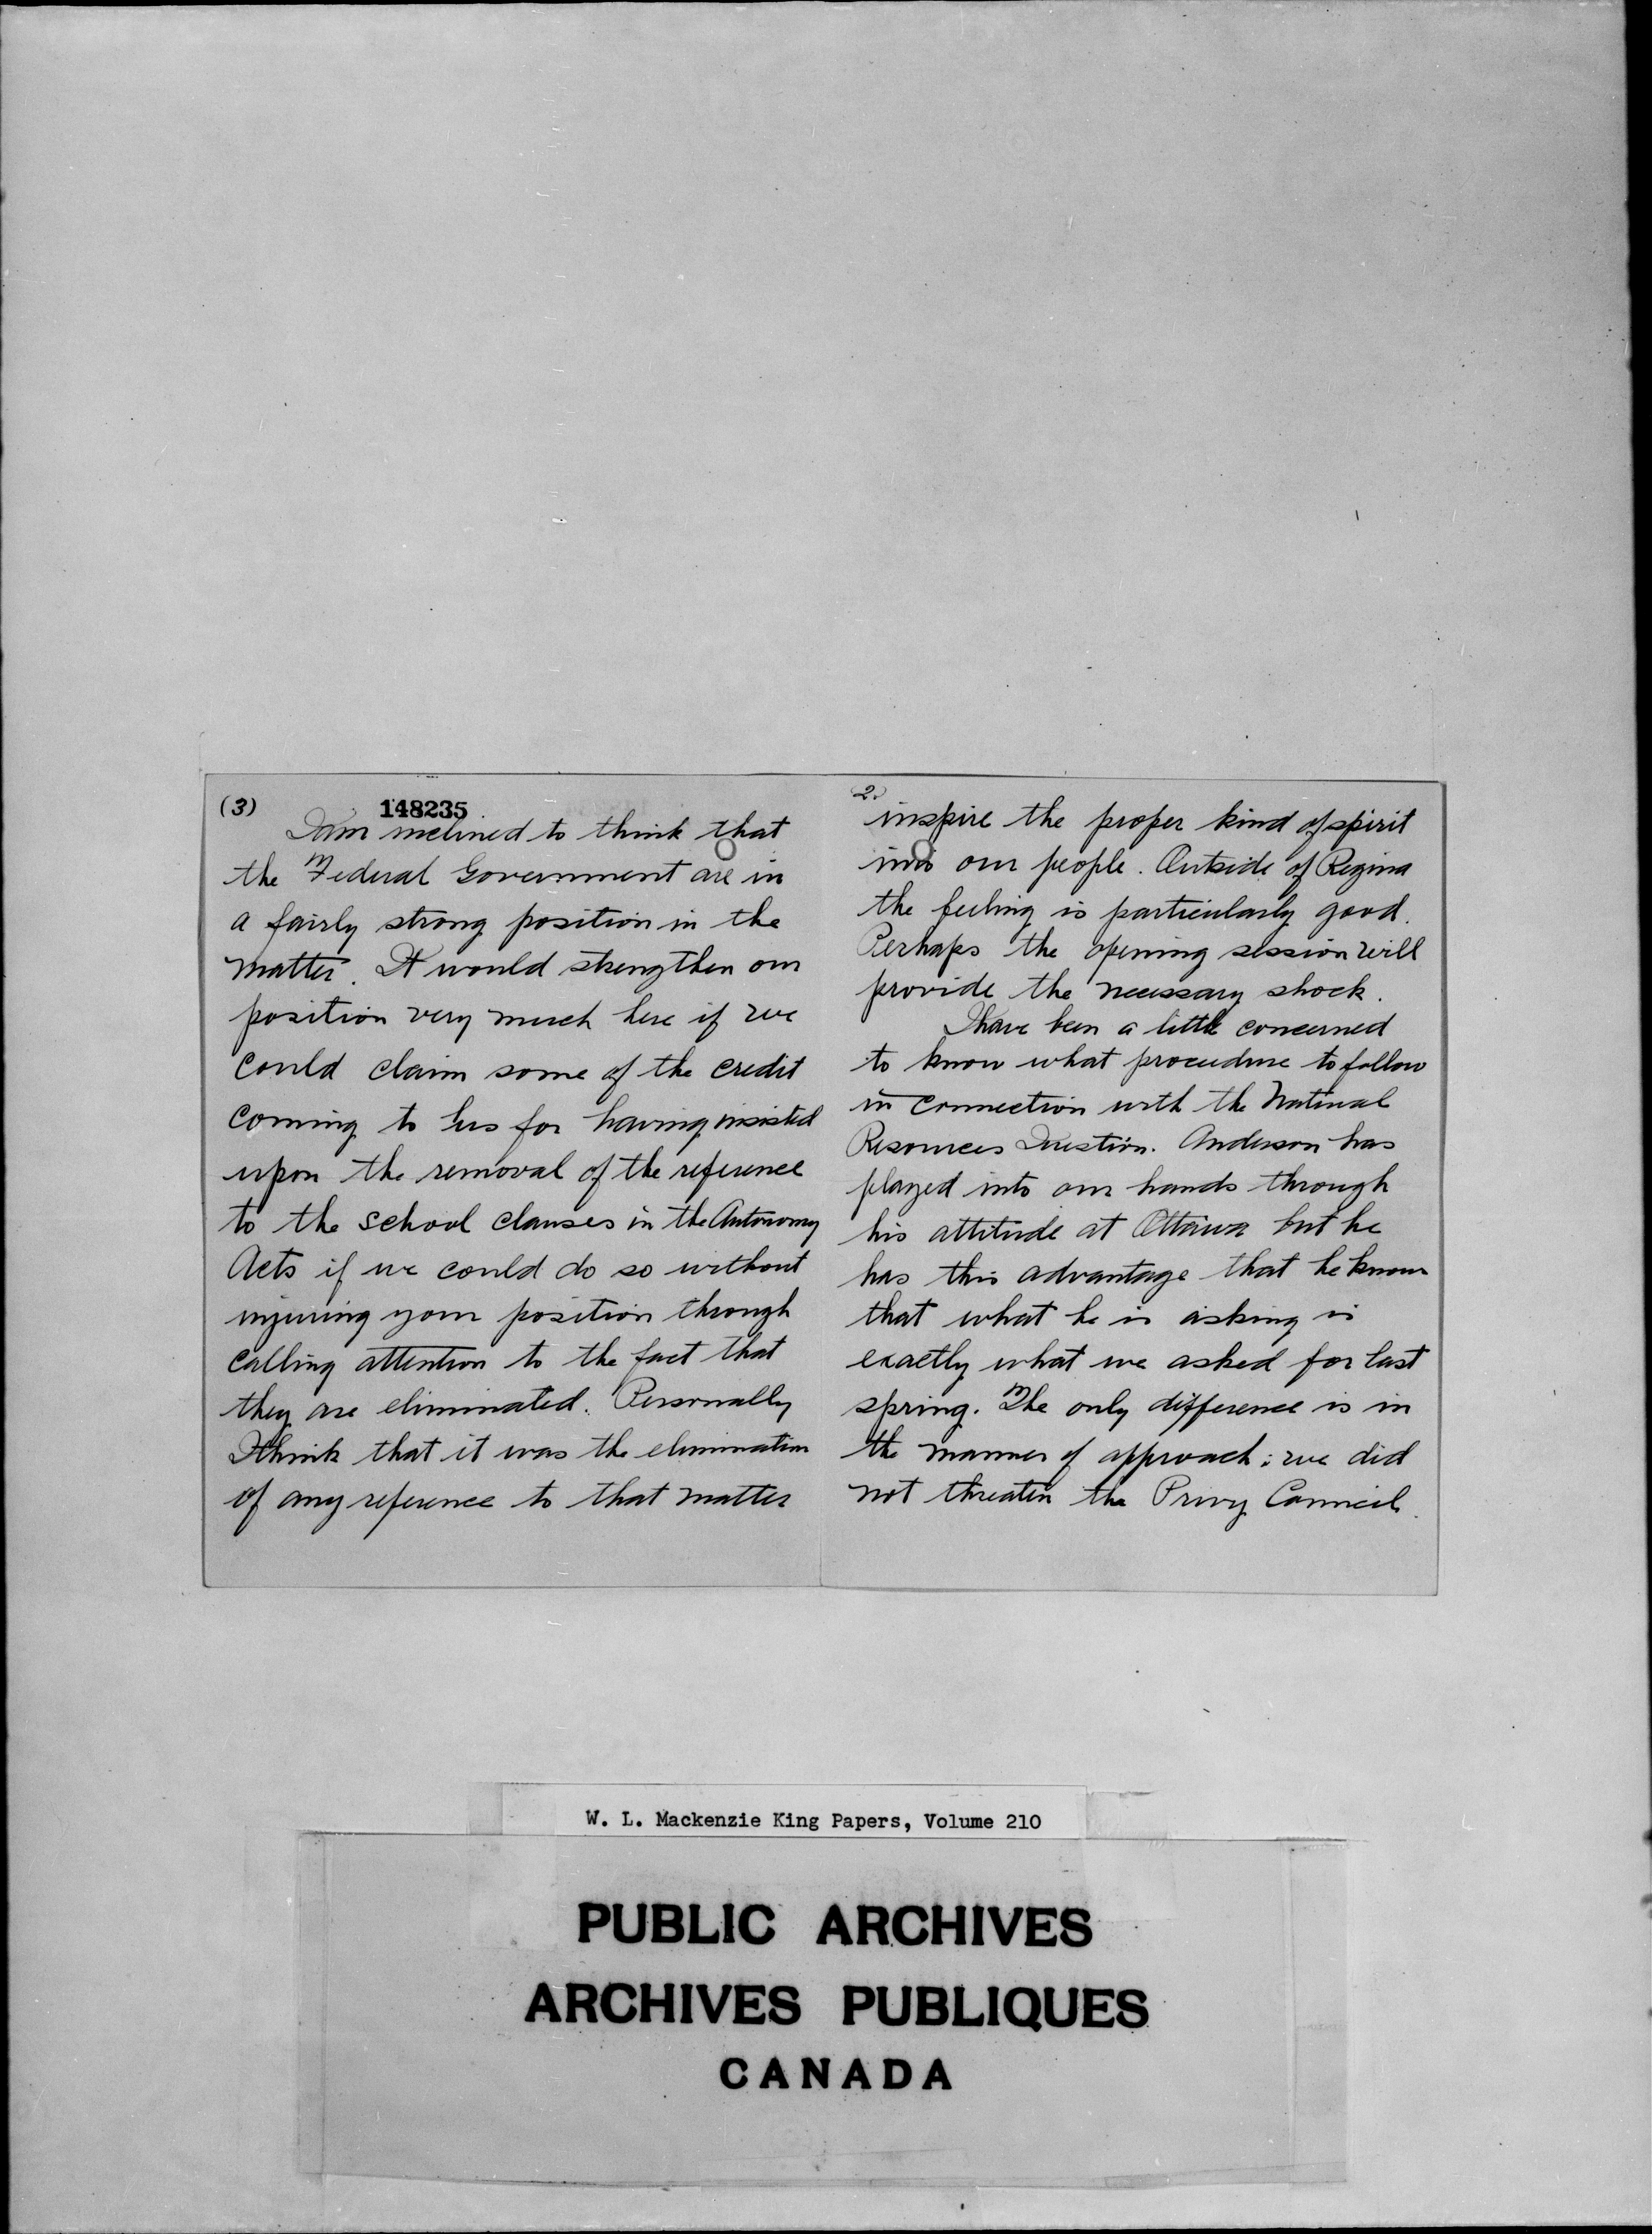 (3)
148235
I am inclined to think that
the Federal Government are in
a fairly strong position in the
matter. It would strengthen our
position very much here if we
could claim some of the credit
coming to us for having insisted
upon the removal of the reference
to the school clauses in the Autonomy
Acts if we could do so without
injuring your position through
calling attention to the fact that
they are eliminated. Personally
I think that it was the elimination
of any reference to that matter
2.
inspire the proper kind of spirit
into our people. Outside of Regina
the feeling is particularly good.
Perhaps the opening session will
provide the necessary shock.
I have been a little concerned
to know what procedure to follow
in connection with the Natural
Resources Question. Anderson has
played into our hands through
his attitude at Ottawa but he
has this advantage that he knows
that what he is asking is
exactly what we asked for last
spring. The only difference is in
the manner of approach: we did
not threaten the Privy Council.
W. L. Mackenzie King Papers, Volume 210
PUBLIC ARCHIVES
ARCHIVES PUBLIQUES
CANADA